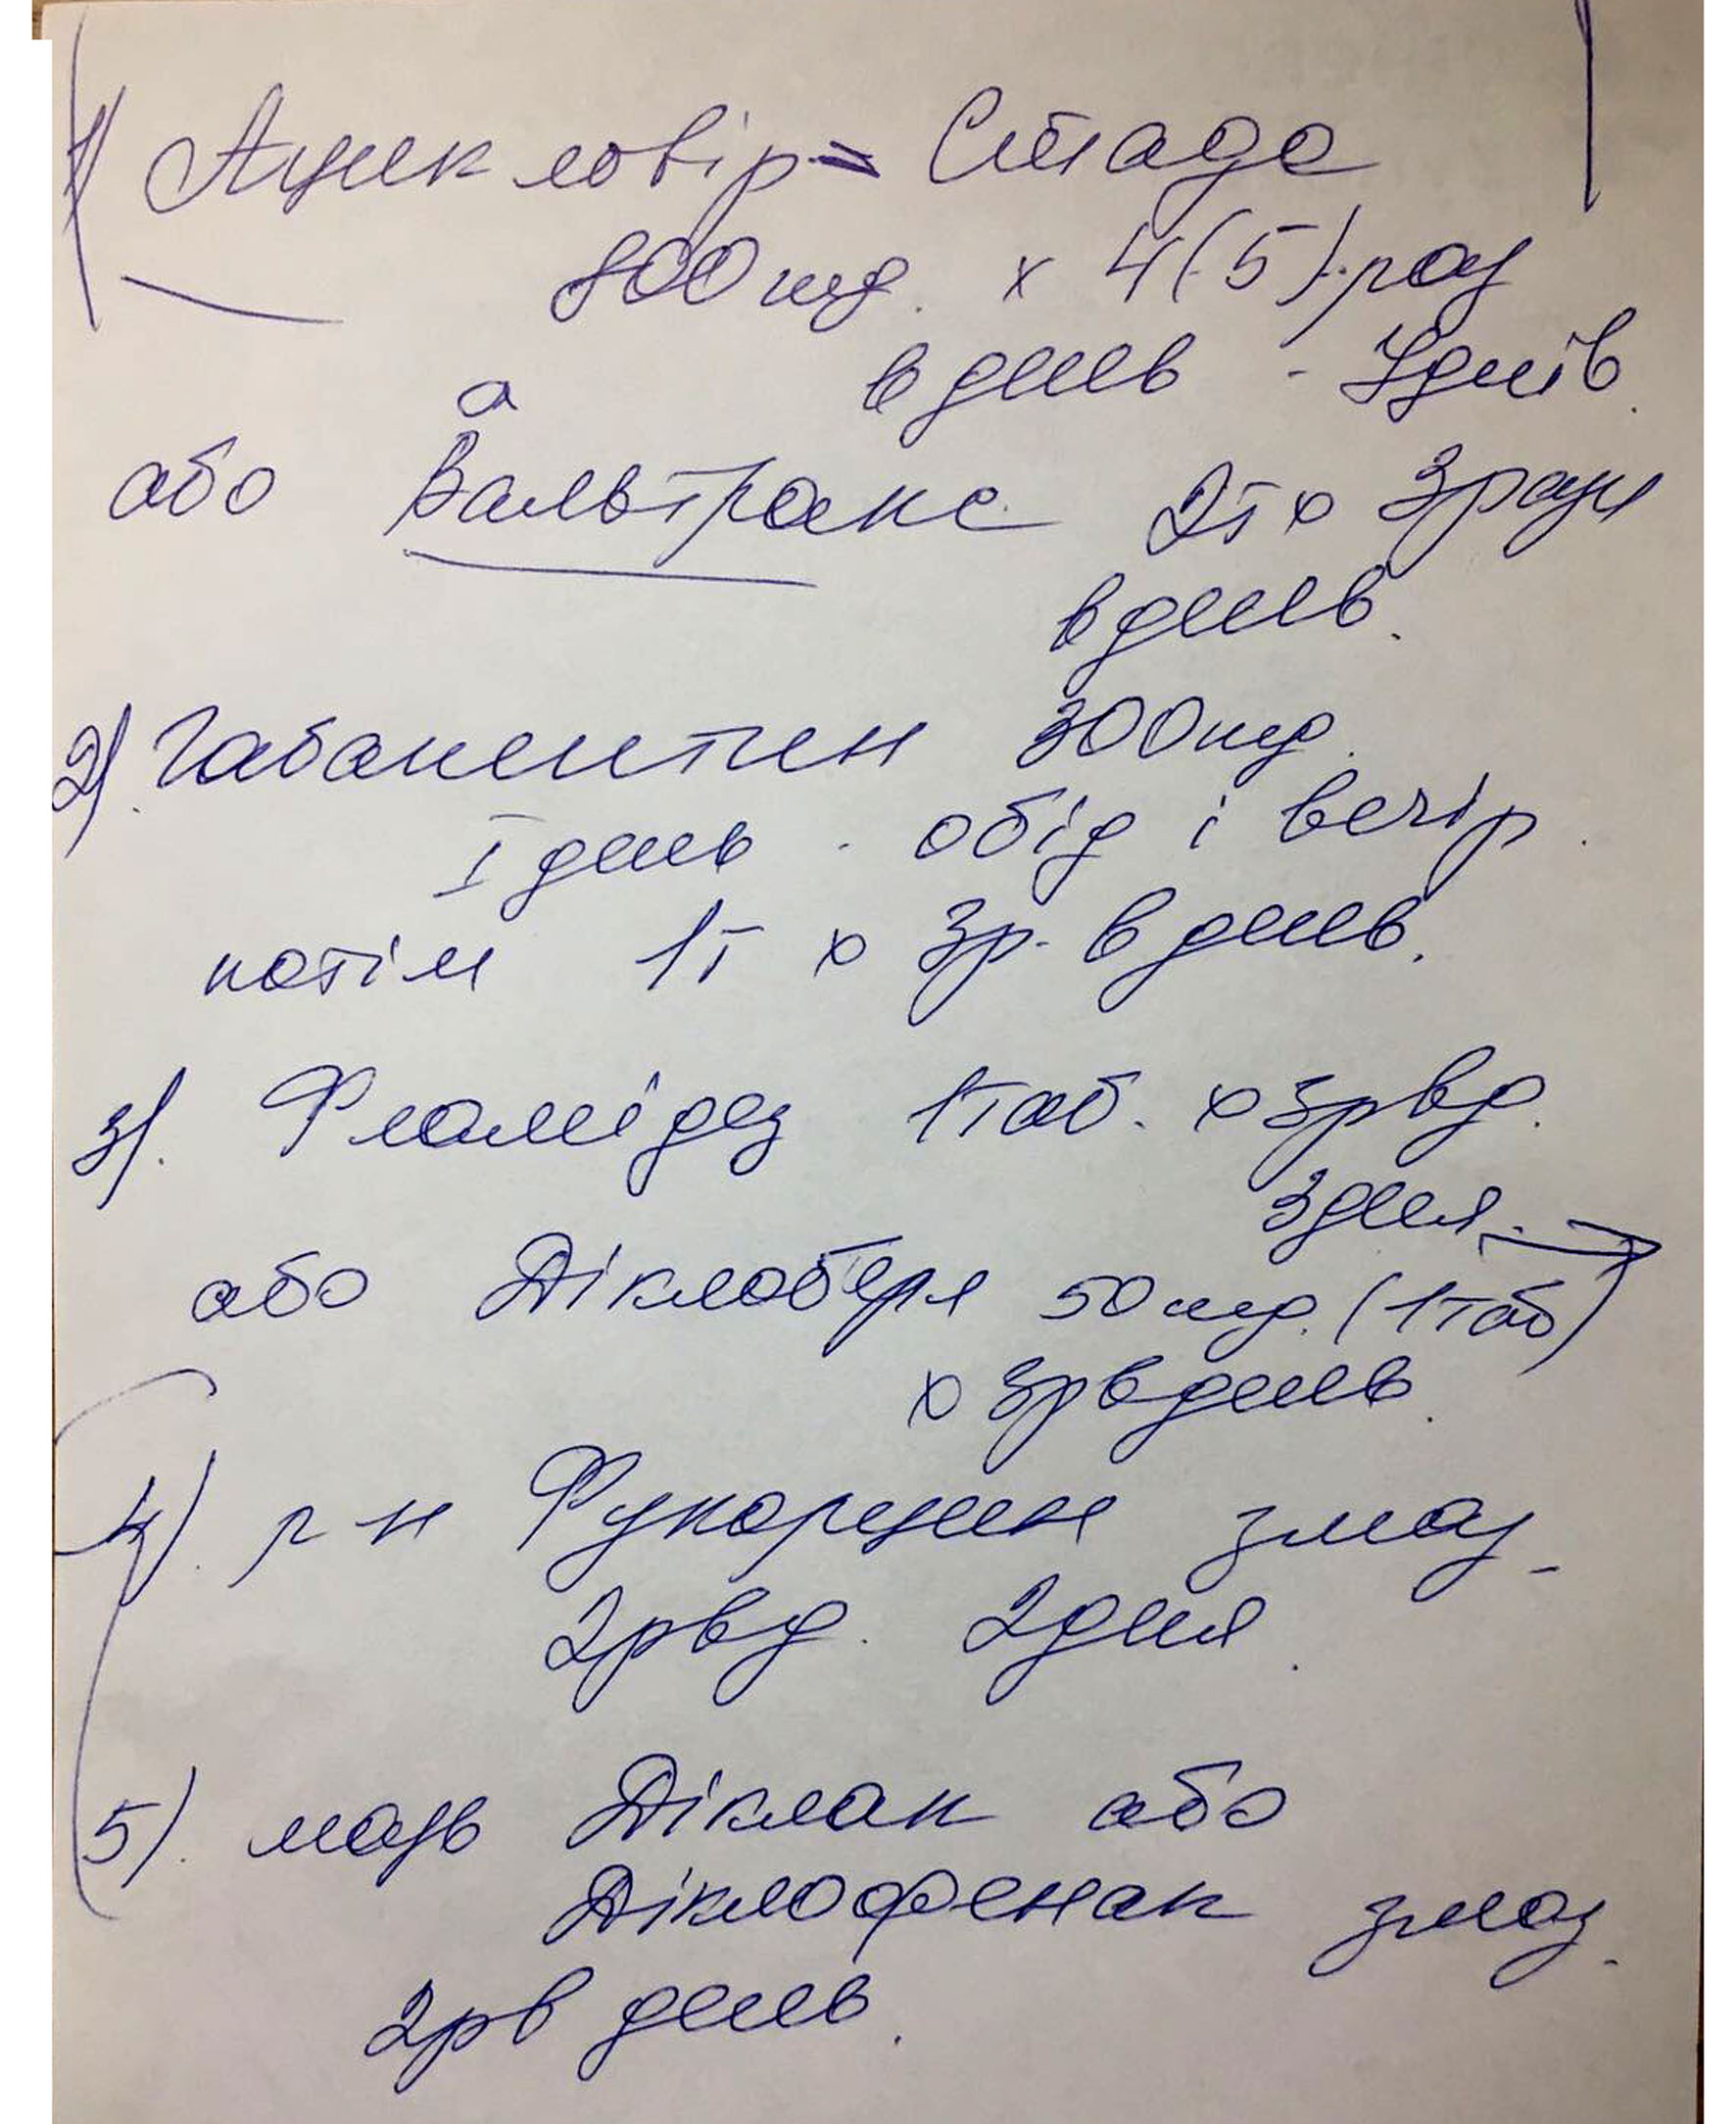 1) Ацикловір - Стада
800 мg. x 4(5) раз
в день - 7днів.
а
або Вальтракс 2т x 3 рази
в день.
2) Габапентин 300 мg.
I день - обід і вечір.
потім 1т x 3р. в день.
3). Фламідез 1таб. x 3рвд.
3дня. →
або Діклоберл 50 мg. (1таб)
x 3р в день.
4). р-н Фукорцин змаз.
2рвд. 2дня.
5). мазь Діклак або
Діклофенак змаз.
2р в день.